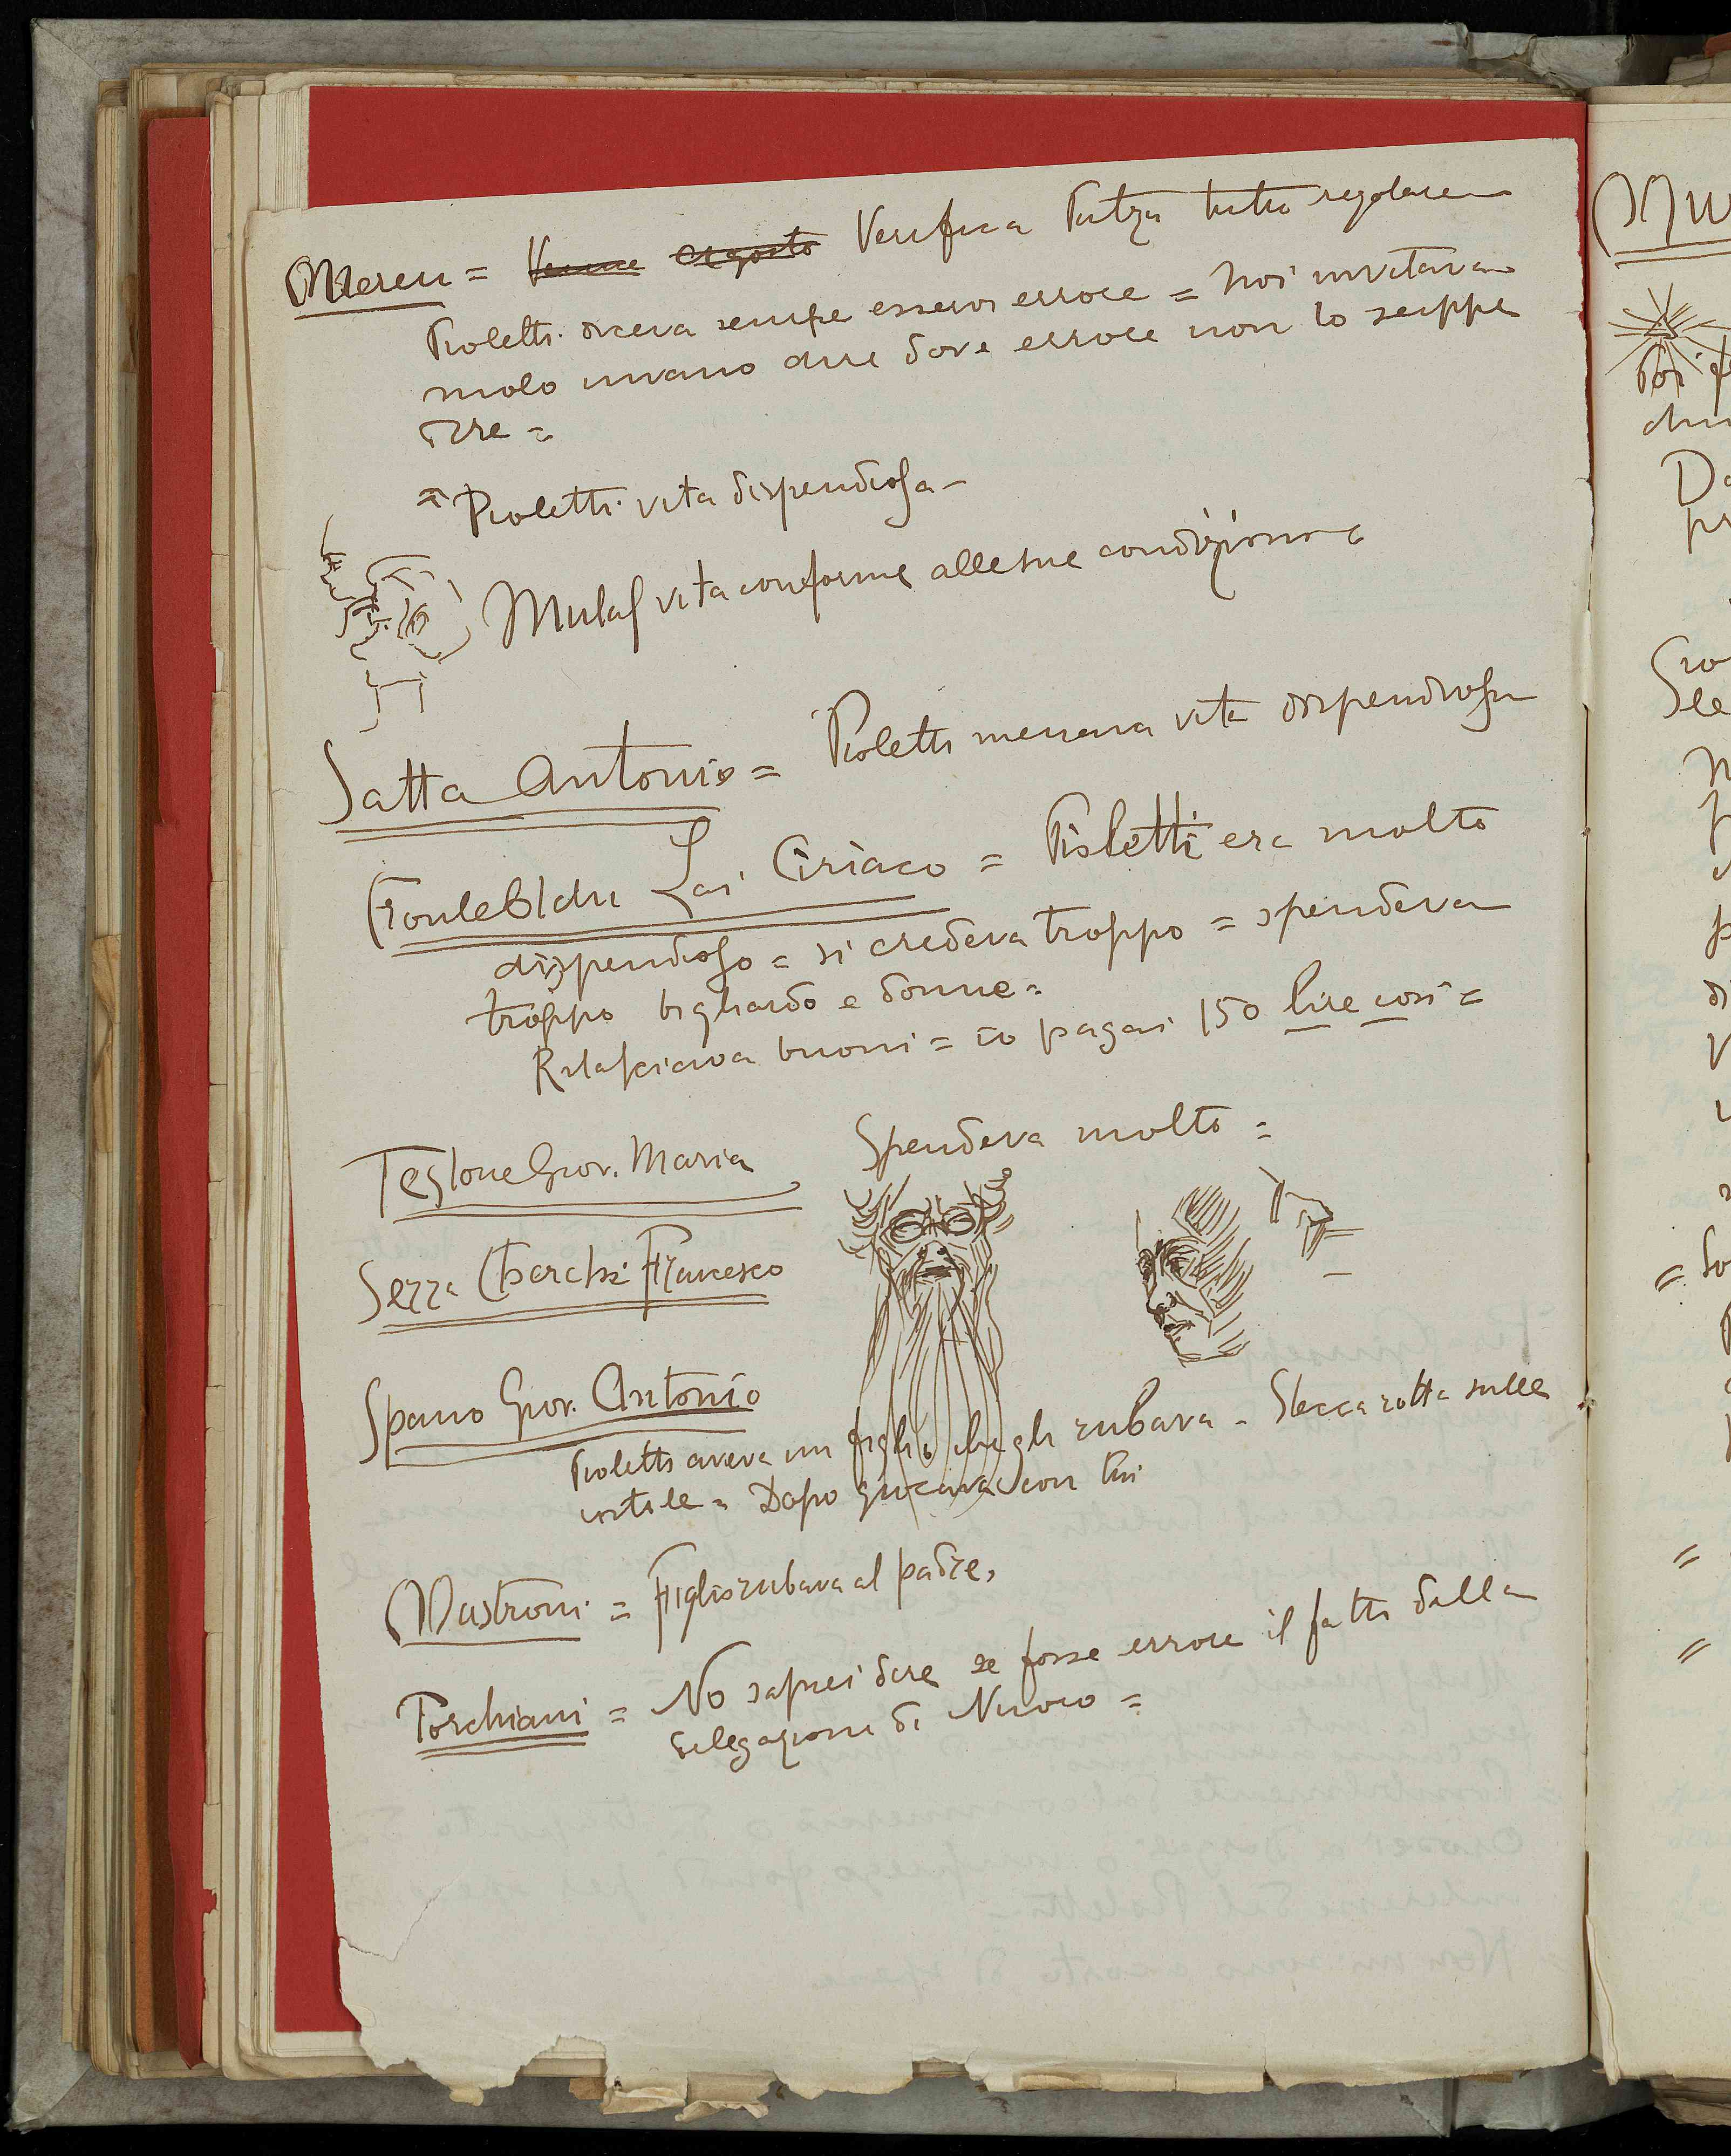 Mereu = Venne agosto Verifica Putzu tutto regolare
Pioletti diceva sempre esservi errore = Noi invitava
molo invano dire dove errore non lo seppe
dire =
= Pioletti vita dispendiosa -
Mulas vita conforme alle sue condizioni
Satta Antonio = Pioletti menava vita dispendiosa
Lai Ciriaco = Pioletti era molto
dispendioso = si credeva troppo = spendeva
troppo bigliardo e donne =
Rilasciava buoni = io pagai 150 lire così =
Testone Giov. Maria Spendeva molto =
Serra Cherchi Francesco
Spano Giov. Antonio
Pioletti aveva un figlio che gli rubava - Stecca rotta sulle
costole = Dopo giocava con lui
Mastroni = Figlio rubava al padre,
Porchiani = No saprei dire se fosse errore il fatto dalla
delegazione di Nuoro =
Mu
Poi